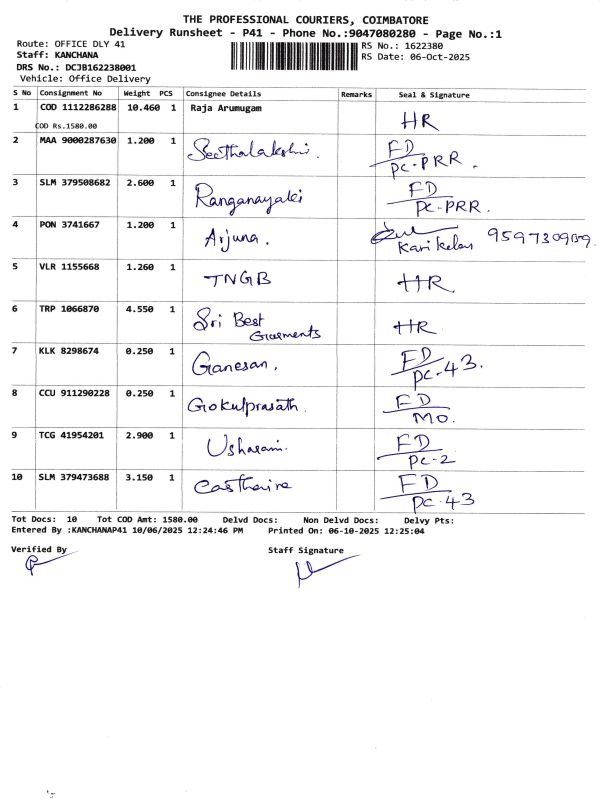 THE PROFESSIONAL COURIERS, COIMBATORE
Delivery Runsheet - P41 - Phone No.:9047080280 - Page No.:1
Route: OFFICE DLY 41 RS No.: 1622380
Staff: KANCHANA RS Date: 06-Oct-2025
DRS No.: DCJB162238001
Vehicle: Office Delivery
S No Consignment No Weight PCS Consignee Details Remarks Seal & Signature
1 COD 1112286288 10.460 1 Raja Arumugam HR
COD Rs.1580.00
2 MAA 9000287630 1.200 1 Seethalakshmi. FD
PC-PRR.
3 SLM 379508682 2.600 1 Ranganayaki FD
PC-PRR.
4 PON 3741667 1.200 1 Arjuna.
Karikelan
5 VLR 1155668 1.260 1 TNGB HR
6 TRP 1066870 4.550 1 Sri Best HR
Garments
7 KLK 8298674 0.250 1 Ganesan. FD
PC-43.
8 CCU 911290228 0.250 1 Gokulprasath. FD
MO.
9 TCG 41954201 2.900 1 FD
PC-2
10 SLM 379473688 3.150 1 FD
PC-43
Tot Docs: 10 Tot COD Amt: 1580.00 Delvd Docs: Non Delvd Docs: Delvy Pts:
Entered By :KANCHANAP41 10/06/2025 12:24:46 PM Printed On: 06-10-2025 12:25:04
Verified By Staff Signature